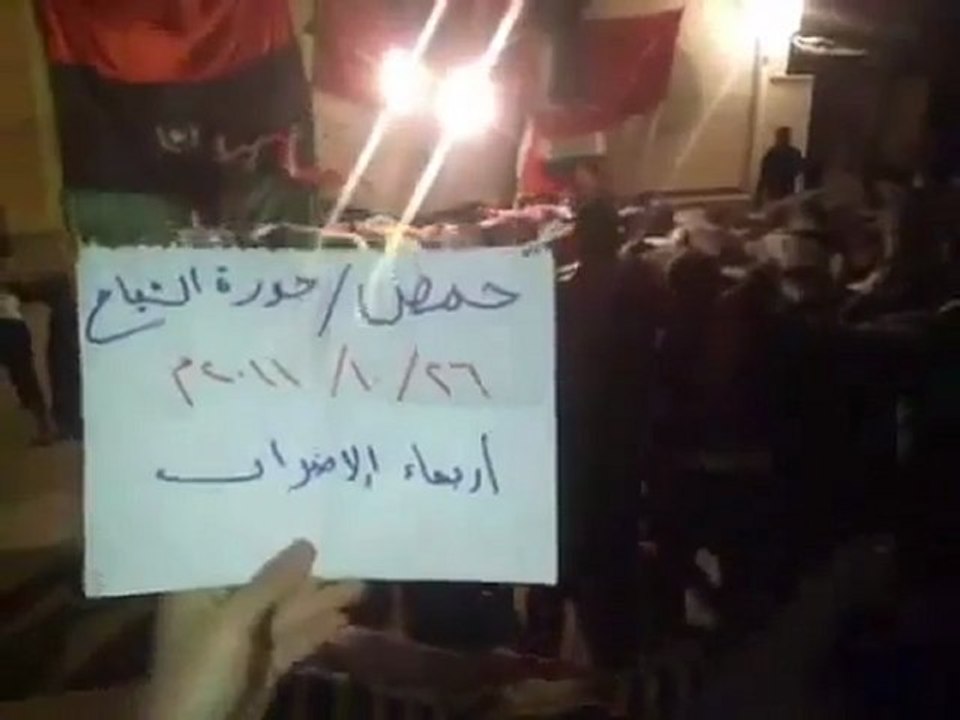 حمص / جورة الشياح
٢٦ / ١٠ / ٢٠١١م
أربعاء الإضراب